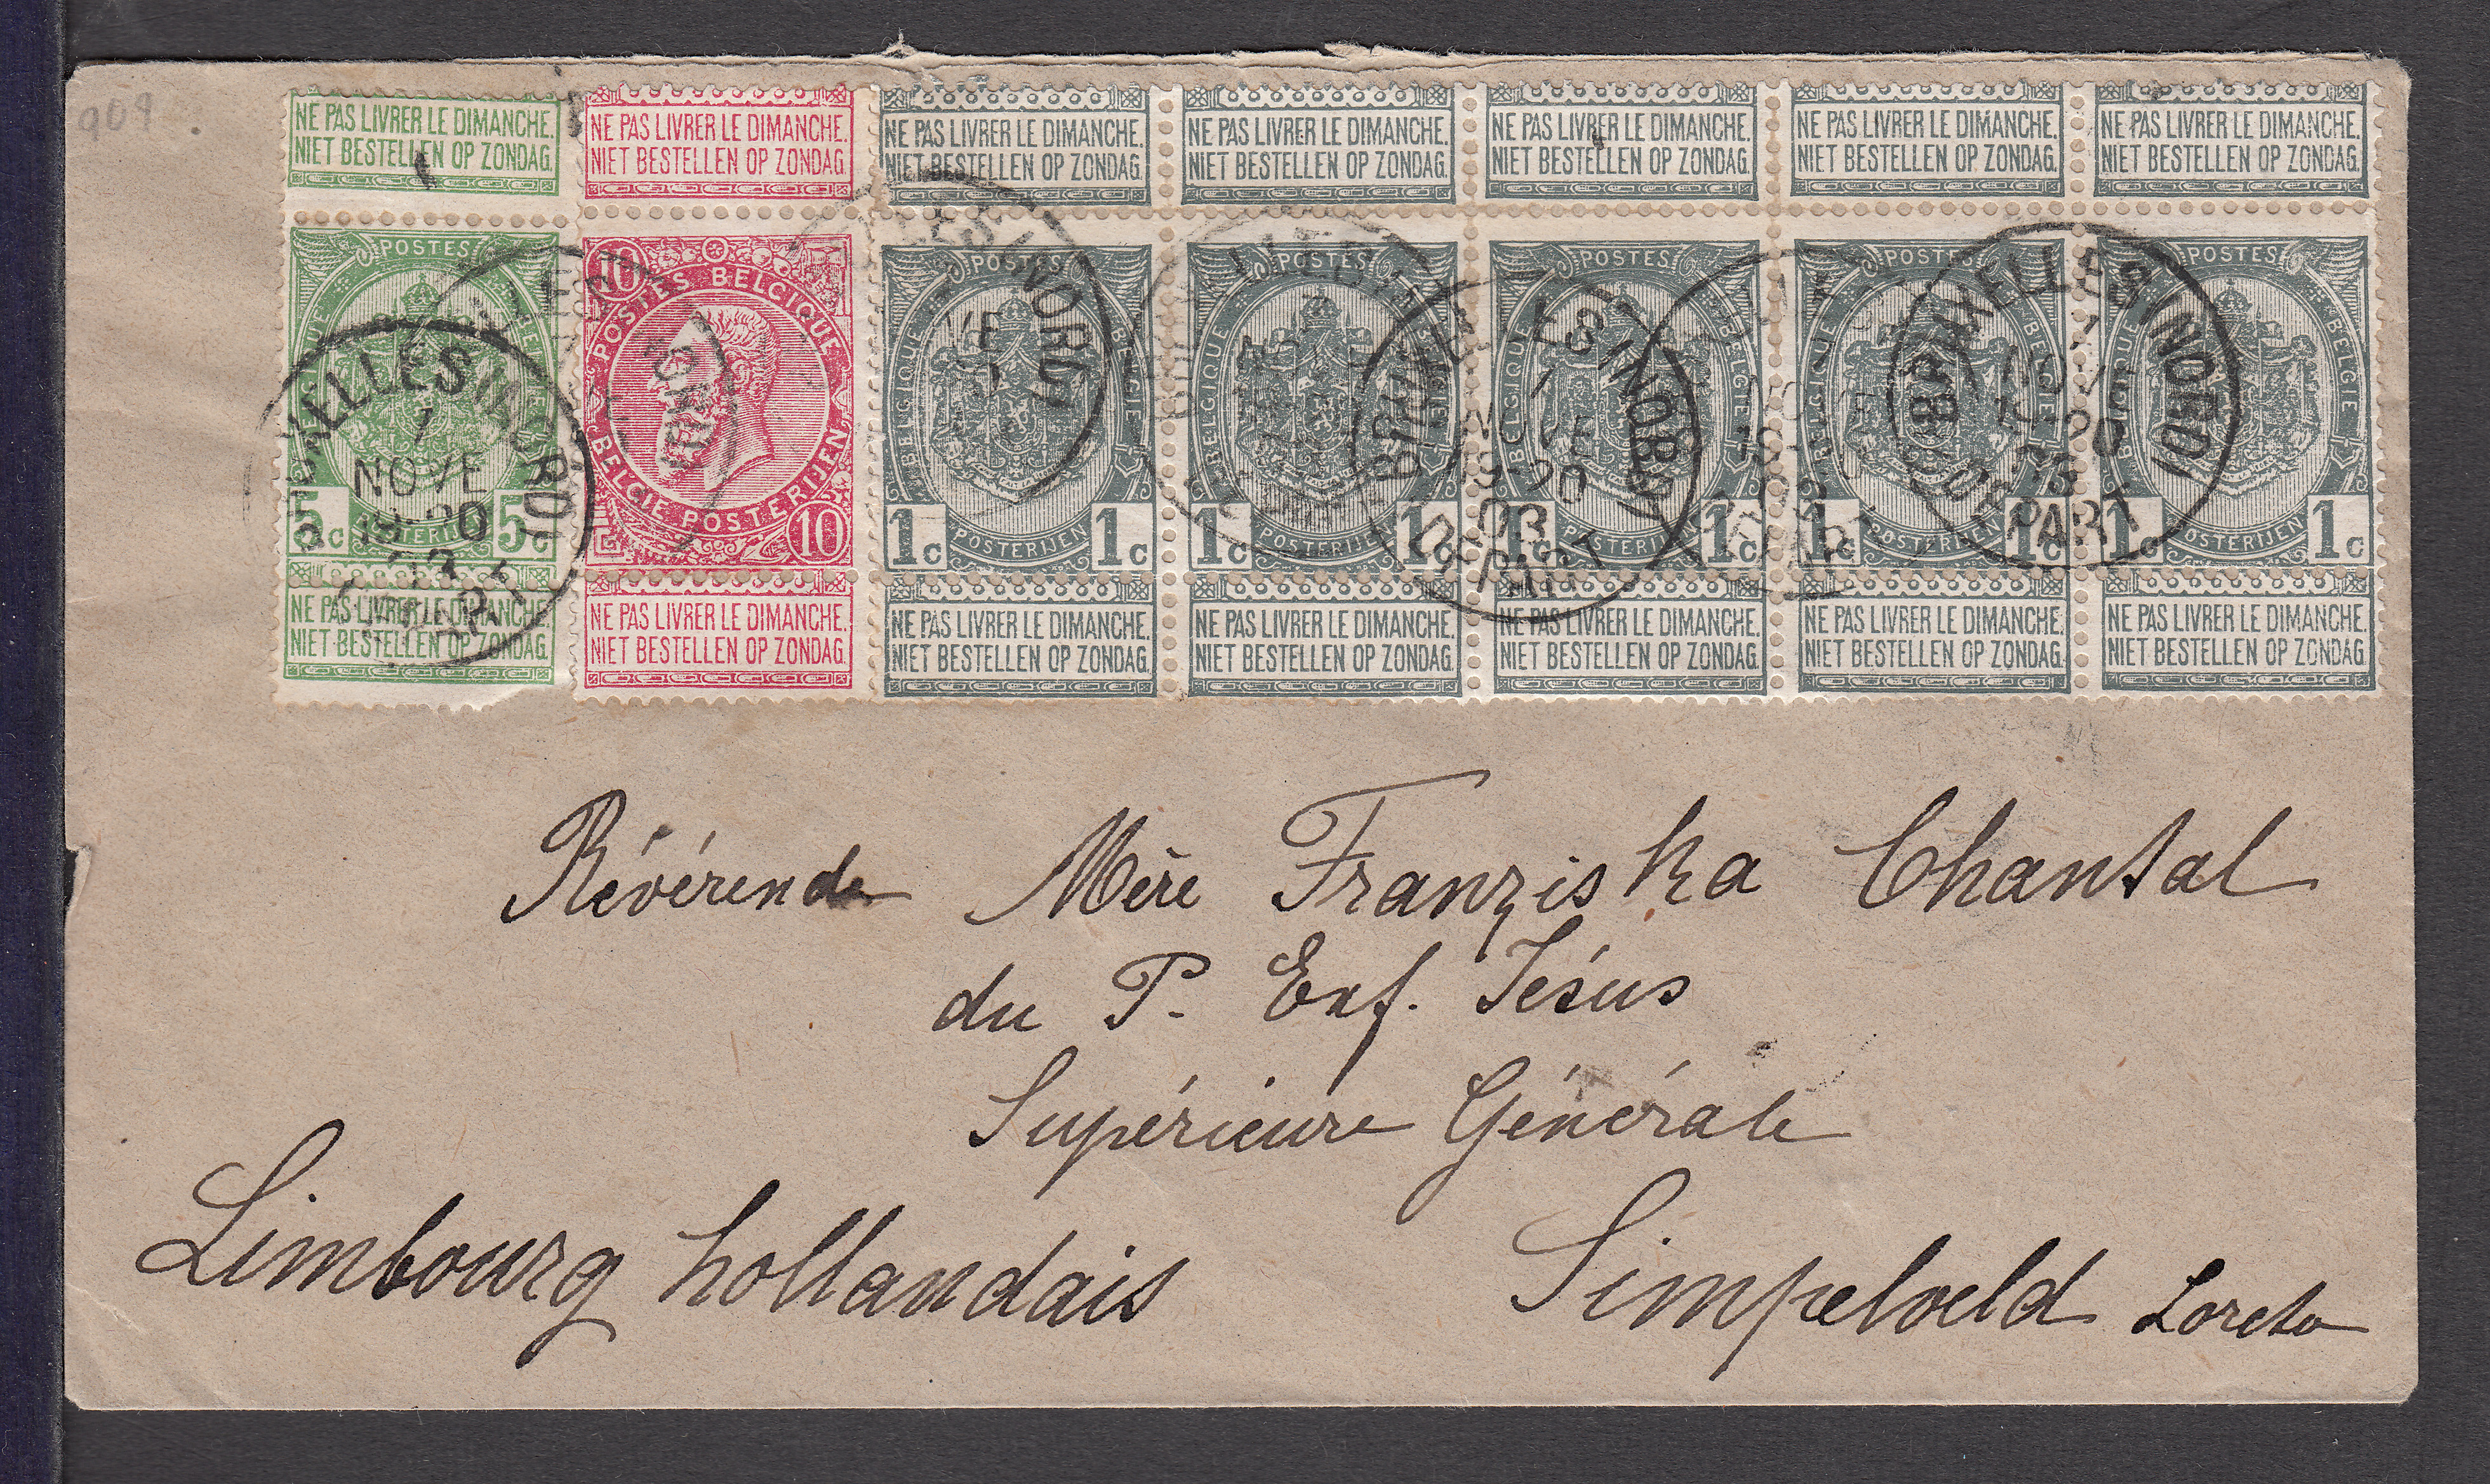 909
NE PAS LIVRER LE DIMANCHE.
NIET BESTELLEN OP ZONDAG.
NE PAS LIVRER LE DIMANCHE.
NIET BESTELLEN OP ZONDAG.
NE PAS LIVRER LE DIMANCHE.
NIET BESTELLEN OP ZONDAG.
NE PAS LIVRER LE DIMANCHE.
NIET BESTELLEN OP ZONDAG.
NE PAS LIVRER LE DIMANCHE.
NIET BESTELLEN OP ZONDAG.
NE PAS LIVRER LE DIMANCHE.
NIET BESTELLEN OP ZONDAG.
NE PAS LIVRER LE DIMANCHE.
NIET BESTELLEN OP ZONDAG.
POSTES
5c 5c
10
POSTES BELGIQUE
BELGIE POSTERIJEN
10
POSTES
BELGIQUE BELGIE
1c POSTERIJEN 1c
POSTES
BELGIQUE BELGIE
1c POSTERIJEN 1c
POSTES
BELGIQUE BELGIE
1c POSTERIJEN 1c
POSTES
BELGIQUE BELGIE
1c POSTERIJEN 1c
POSTES
BELGIQUE BELGIE
1c POSTERIJEN 1c
BRUXELLES (NORD)
1
NOVE
19-20
03
DEPART
NE PAS LIVRER LE DIMANCHE.
NIET BESTELLEN OP ZONDAG.
NE PAS LIVRER LE DIMANCHE.
NIET BESTELLEN OP ZONDAG.
NE PAS LIVRER LE DIMANCHE.
NIET BESTELLEN OP ZONDAG.
NE PAS LIVRER LE DIMANCHE.
NIET BESTELLEN OP ZONDAG.
NE PAS LIVRER LE DIMANCHE.
NIET BESTELLEN OP ZONDAG.
NE PAS LIVRER LE DIMANCHE.
NIET BESTELLEN OP ZONDAG.
NE PAS LIVRER LE DIMANCHE.
NIET BESTELLEN OP ZONDAG.
Révérende Mère Franziska Chantal
du P. Enf. Jésus
Supérieure Générale
Limbourg hollandais Simpelveld Loreto